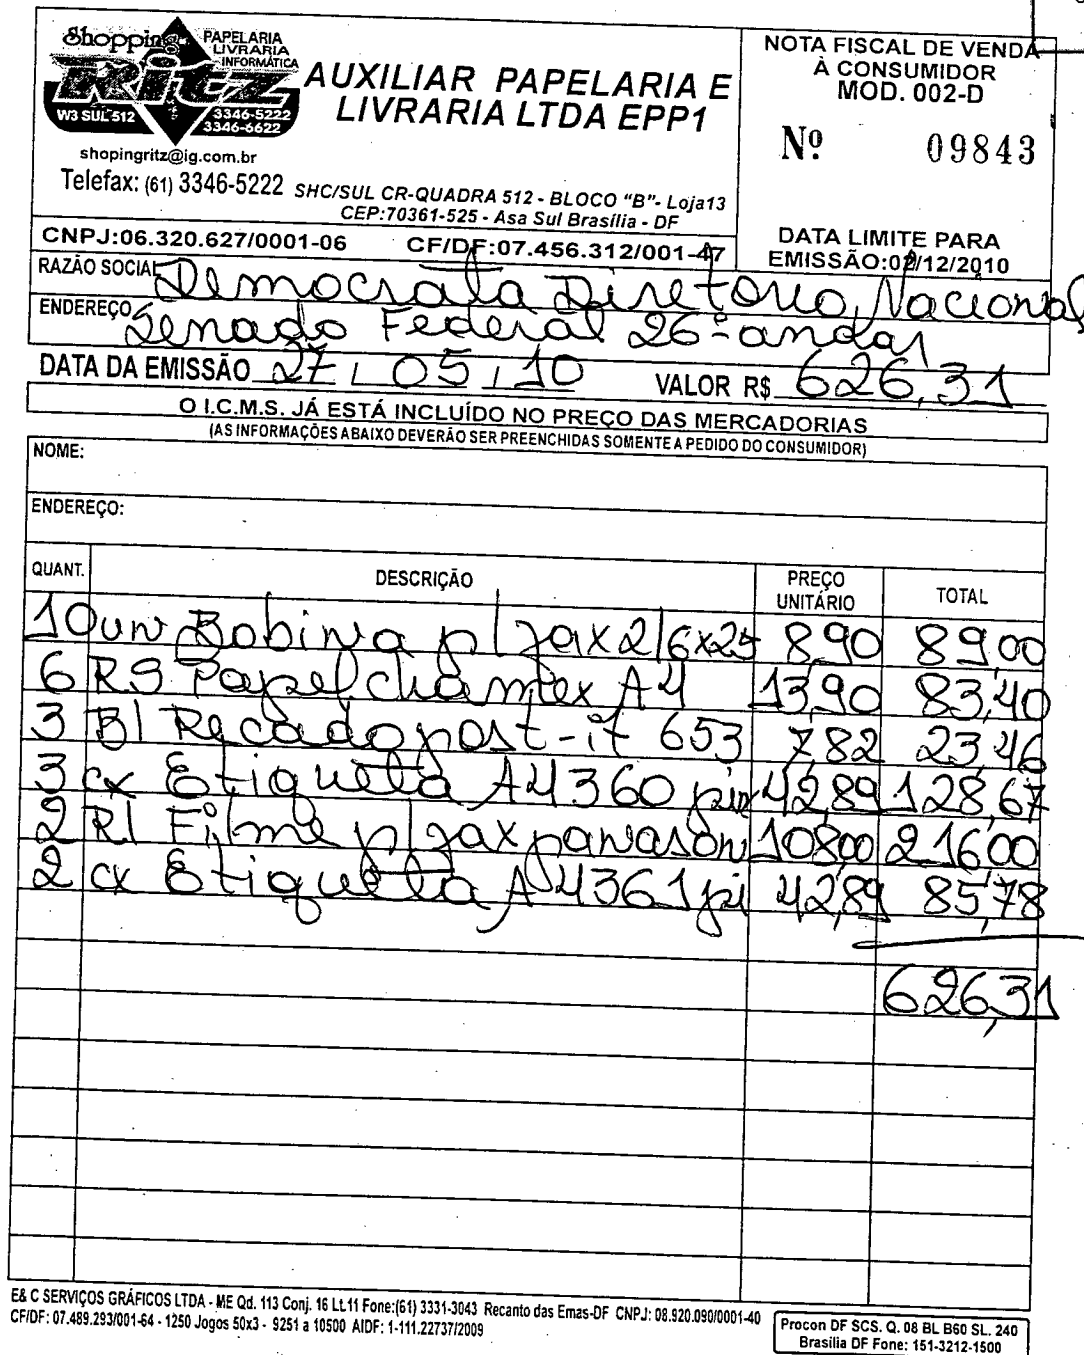 Shopping PAPELARIA
LIVRARIA
INFORMÁTICA
Ritz
W3 SUL 512 3346-5222
3346-6622
shopingritz@ig.com.br
AUXILIAR PAPELARIA E
LIVRARIA LTDA EPP1
Telefax: (61) 3346-5222 SHC/SUL CR-QUADRA 512 - BLOCO "B"- Loja13
CEP:70361-525 - Asa Sul Brasília - DF
NOTA FISCAL DE VENDA
À CONSUMIDOR
MOD. 002-D
Nº 09843
DATA LIMITE PARA
EMISSÃO:02/12/2010
CNPJ:06.320.627/0001-06 CF/DF:07.456.312/001-47
RAZÃO SOCIAL Democrata Diretorio Nacional
ENDEREÇO Senado Federal 26º andar
DATA DA EMISSÃO 27 / 05 / 10 VALOR R$ 626,31
O I.C.M.S. JÁ ESTÁ INCLUÍDO NO PREÇO DAS MERCADORIAS
(AS INFORMAÇÕES ABAIXO DEVERÃO SER PREENCHIDAS SOMENTE A PEDIDO DO CONSUMIDOR)
NOME:
ENDEREÇO:
QUANT. DESCRIÇÃO PREÇO UNITÁRIO TOTAL
10 un Bobina p/ fax 216x25 8,90 89,00
6 RS Papel chamex A4 13,90 83,40
3 Bl Recado post-it 653 7,82 23,46
3 cx Etiqueta A4360 pim 42,89 128,67
2 Rl Filme p/ fax panason 108,00 216,00
2 cx Etiqueta A4361 pi 42,89 85,78
626,31
E& C SERVIÇOS GRÁFICOS LTDA - ME Qd. 113 Conj. 16 Lt.11 Fone:(61) 3331-3043 Recanto das Emas-DF CNPJ: 08.920.090/0001-40
CF/DF: 07.489.293/001-64 - 1250 Jogos 50x3 - 9251 a 10500 AIDF: 1-111.22737/2009
Procon DF SCS. Q. 08 BL B60 SL. 240
Brasília DF Fone: 151-3212-1500